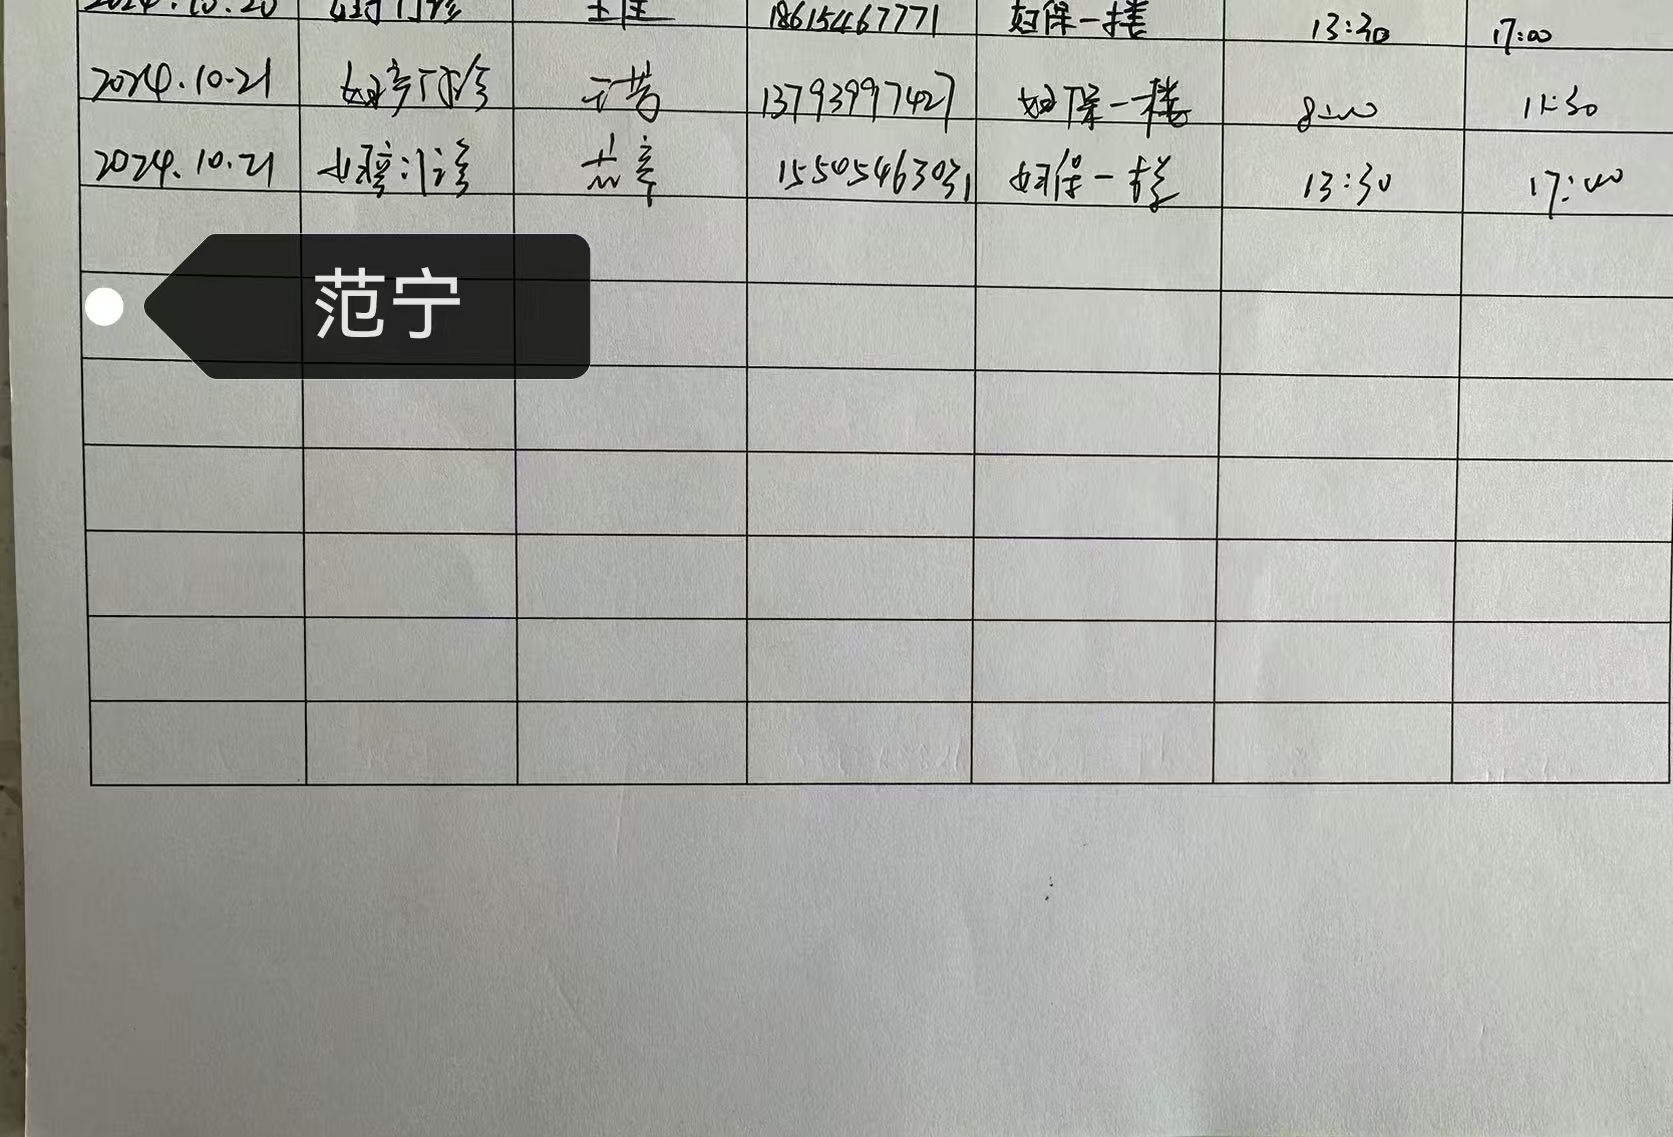 2024.10.20 门诊 18615467771 妇保一楼 13:30 17:00
2024.10.21 门诊 13793997427 妇保一楼 8:00 11:30
2024.10.21 门诊 15505463031 妇保一楼 13:30 17:00
范宁